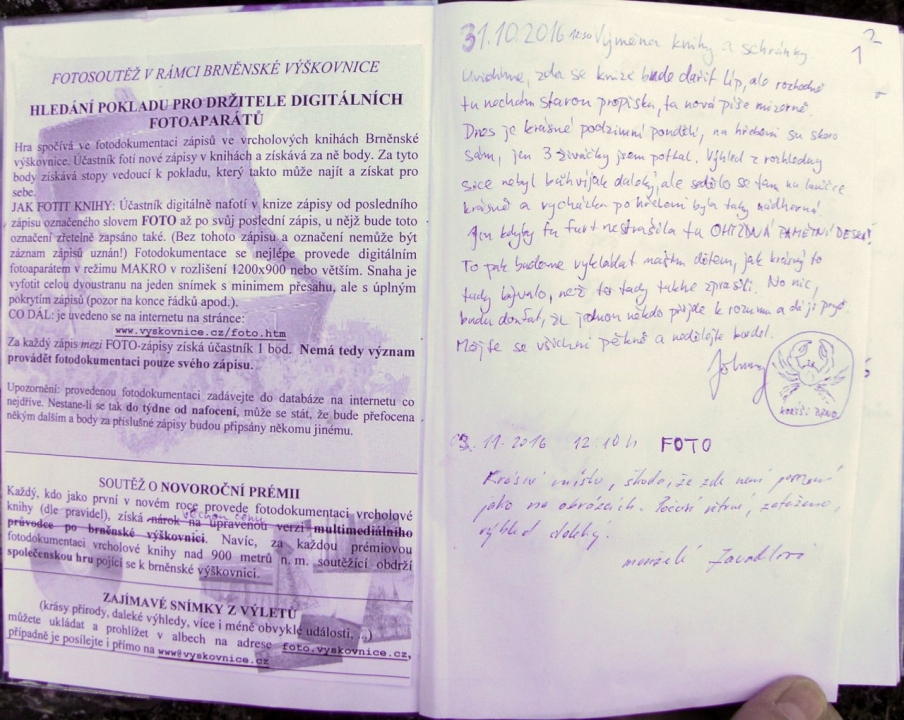 FOTOSOUTĚŽ V RÁMCI BRNĚNSKÉ VÝŠKOVNICE
HLEDÁNÍ POKLADU PRO DRŽITELE DIGITÁLNÍCH
FOTOAPARÁTŮ
Hra spočívá ve fotodokumentaci zápisů ve vrcholových knihách Brněnské
výškovnice. Účastník fotí nové zápisy v knihách a získává za ně body. Za tyto
body získává stopy vedoucí k pokladu, který takto může najít a získat pro
sebe.
JAK FOTIT KNIHU: Účastník digitálně nafotí v knize zápisy od posledního
zápisu označeného slovem FOTO až po svůj poslední zápis, u nějž bude toto
označení zřetelně zapsáno také. (Bez tohoto zápisu a označení nemůže být
záznam zápisů uznán!) Fotodokumentace se nejlépe provede digitálním
fotoaparátem v režimu MAKRO v rozlišení 1200x900 nebo větším. Snaha je
vyfotit celou dvoustranu na jeden snímek s minimem přesahu, ale s úplným
pokrytím zápisů (pozor na konce řádků apod.).
CO DÁL: je uvedeno se na internetu na stránce:
www.vyskovnice.cz/foto.htm
Za každý zápis mezi FOTO-zápisy získá účastník 1 bod. Nemá tedy význam
provádět fotodokumentaci pouze svého zápisu.
Upozornění: provedenou fotodokumentaci zadávejte do databáze na internetu co
nejdříve. Nestane-li se tak do týdne od nafocení, může se stát, že bude přefocena
někým dalším a body za příslušné zápisy budou připsány někomu jinému.
SOUTĚŽ O NOVOROČNÍ PRÉMII
Každý, kdo jako první v novém roce provede fotodokumentaci vrcholové
věcnou cenu
knihy (dle pravidel), získá nárok na upravenou verzi multimediálního
průvodce po brněnské výškovnici. Navíc, za každou prémiovou
fotodokumentaci vrcholové knihy nad 900 metrů n. m. soutěžící obdrží
společenskou hru pojící se k brněnské výškovnici.
ZAJÍMAVÉ SNÍMKY Z VÝLETŮ
(krásy přírody, daleké výhledy, více i méně obvyklé události, ...)
můžete ukládat a prohlížet v albech na adrese foto.vyskovnice.cz,
případně je posílejte i přímo na www@vyskovnice.cz
31.10.2016 Výměna knihy a schránky
Uvidíme, zda se knize bude dařit líp, ale rozhodně
tu nechám starou propisku, ta nová píše mizerně.
Dnes je krásné podzimní pondělí, na hřebeni su skoro
sám, jen 3 živáčky jsem potkal. Výhled z rozhledny
sice nebyl bůhvíjak daleký, ale sedělo se tam na lavičce
krásně a vycházka po hřebeni byla taky nádherná
Jen kdyby tu furt nestrašila ta OHYZDNÁ PAMĚTNÍ DESKA!
To pak budeme vykládat našim dětem, jak krásný to
tady bývalo, než to tady takhle zprasili. No nic,
budu doufat, že jednou někdo přijde k rozumu a dá ji pryč.
Mějte se všichni pěkně a nedělejte bordel.
Johnny
12
3.11.2016 12.10 h FOTO
Krásné místo, škoda, že zde není
jako na obrázcích. Počasí větrné, zataženo,
výhled daleký.
manželé